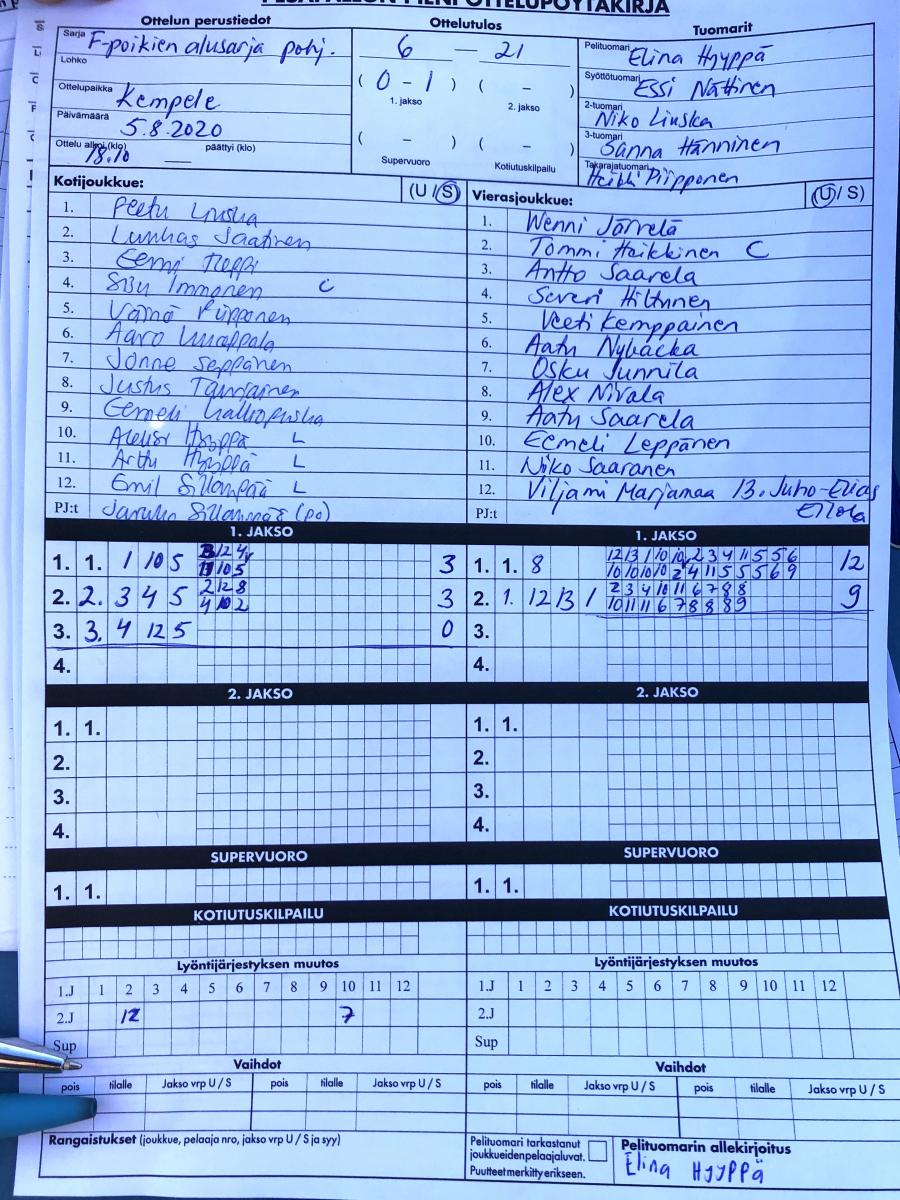 PESÄPALLON PIENI OTTELUPÖYTÄKIRJA
Ottelun perustiedot
Ottelutulos
Tuomarit
Sarja F-poikien alusarja pohj.
Lohko
Ottelupaikka Kempele
Päivämäärä 5.8.2020
Ottelu alkoi (klo) 18.10 päättyi (klo)
6 — 21
( 0 - 1 ) ( - )
1. jakso 2. jakso
( - ) ( - )
Supervuoro Kotiutuskilpailu
Pelituomari Elina Hyyppä
Syöttötuomari Essi Nättinen
2-tuomari Niko Liuska
3-tuomari Sanna Hänninen
Takarajatuomari Heikki Piipponen
Kotijoukkue: (U / S)
1. Peetu Liuska
2. Luukas Saatinen
3. Eemi
4. Sisu Immonen C
5. Väinö Piipponen
6. Aaro
7. Jonne Seppänen
8. Justus
9. Eemeli
10. Aleksi Hyyppä L
11. Arttu Hyyppä L
12. Emil Sillanpää L
PJ:t Sillanpää (po)
Vierasjoukkue: (U / S)
1. Wenni Järvelä
2. Tommi Heikkinen C
3. Antto Saarela
4. Severi Hiltunen
5. Veeti Kemppainen
6. Aatu Nybacka
7. Osku Junnila
8. Alex Nivala
9. Aatu Saarela
10. Eemeli Leppänen
11. Niko Saaranen
12. Viljami Marjamaa 13. Juho-Elias
PJ:t Eilola
1. JAKSO
1. 1. 1 10 5 3 12 4 3
11 10 5
2. 2. 3 4 5 2 12 8 3
4 10 2
3. 3. 4 12 5 0
4.
1. JAKSO
1. 1. 8 12 13 1 10 10 2 3 4 11 5 5 6 12
10 10 10 10 2 4 11 5 5 5 6 9
2. 1. 12 13 1 2 3 4 10 11 6 7 8 8 9
10 11 11 6 7 8 8 8 9
3.
4.
2. JAKSO
1. 1.
2.
3.
4.
2. JAKSO
1. 1.
2.
3.
4.
SUPERVUORO
1. 1.
SUPERVUORO
1. 1.
KOTIUTUSKILPAILU
KOTIUTUSKILPAILU
Lyöntijärjestyksen muutos
1.J 1 2 3 4 5 6 7 8 9 10 11 12
2.J 12 7
Sup
Lyöntijärjestyksen muutos
1.J 1 2 3 4 5 6 7 8 9 10 11 12
2.J
Sup
Vaihdot
pois tilalle Jakso vrp U / S pois tilalle Jakso vrp U / S
Vaihdot
pois tilalle Jakso vrp U / S pois tilalle Jakso vrp U / S
Rangaistukset (joukkue, pelaaja nro, jakso vrp U / S ja syy)
Pelituomari tarkastanut
joukkueiden pelaajaluvat.
Puutteet merkitty erikseen.
Pelituomarin allekirjoitus
Elina Hyyppä